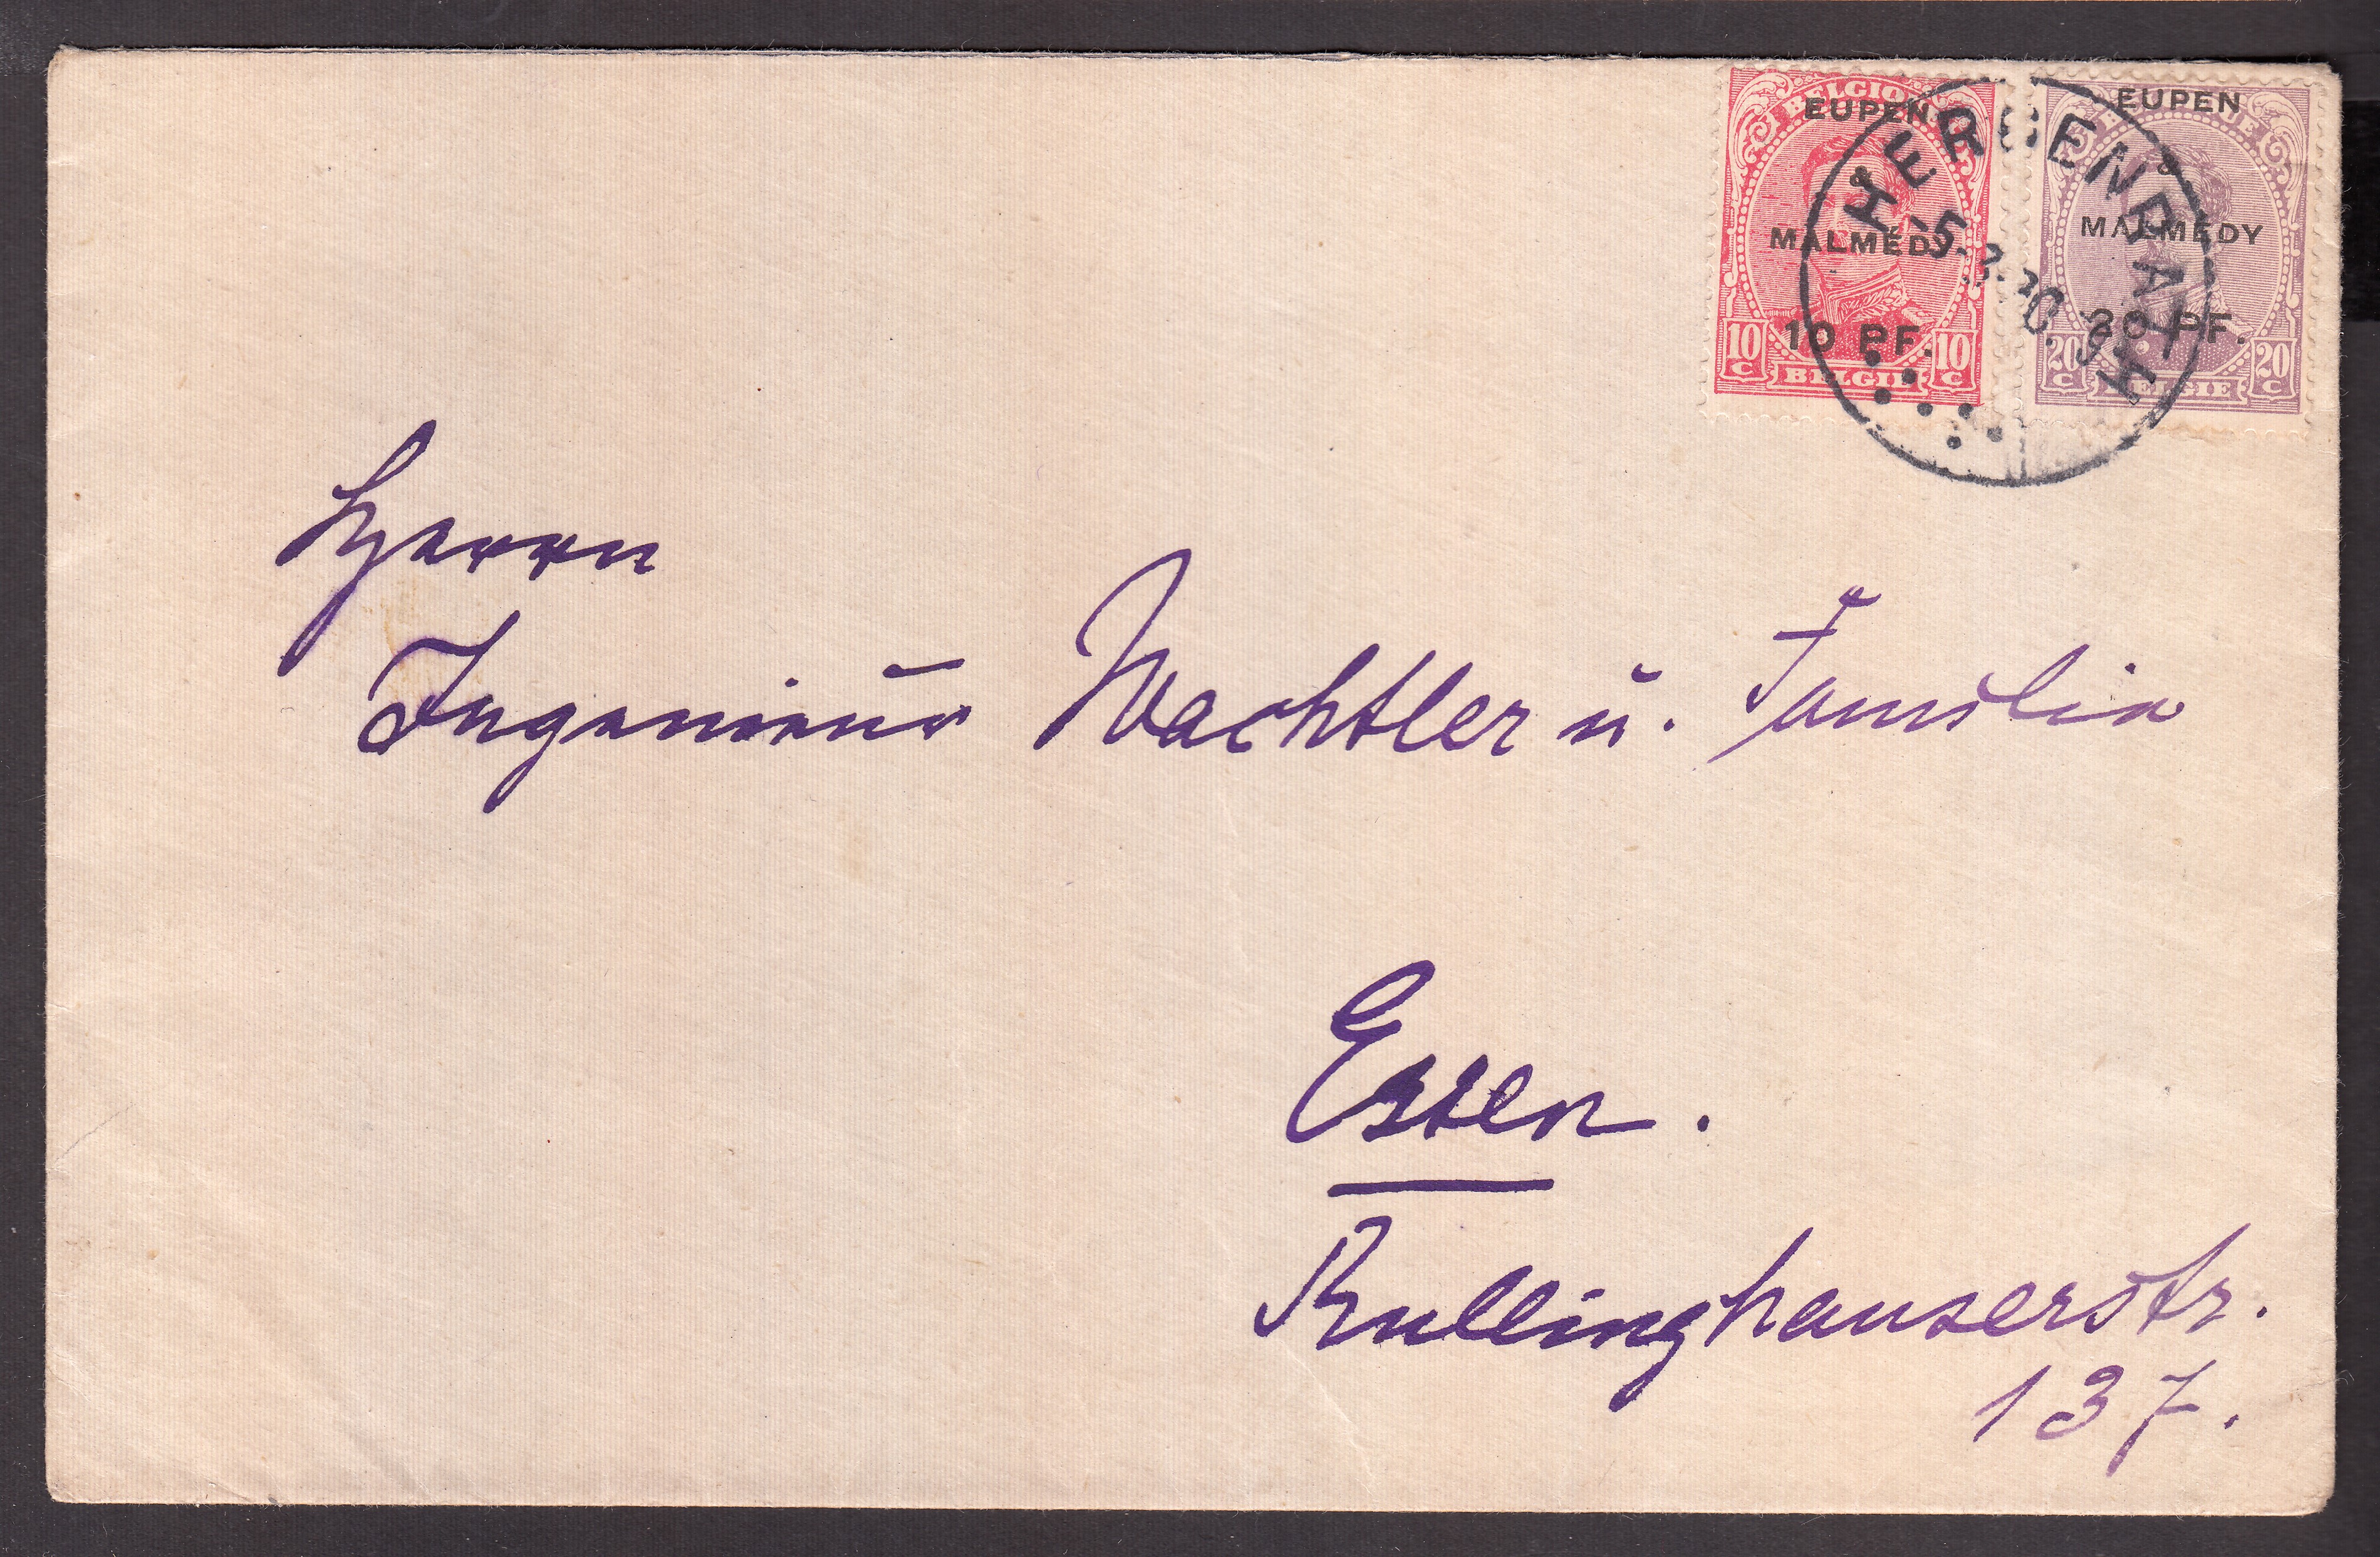 BELGIQUE
EUPEN
&
MALMÉDY
10 PF.
10 C BELGIE 10 C
BELGIQUE
EUPEN
&
MALMÉDY
20 PF.
20 C BELGIE 20 C
HERGENRATH
-5. 20.
Herrn
Ingenieur Wachtler u. Familie
Essen.
Rullinghauserstr.
137.